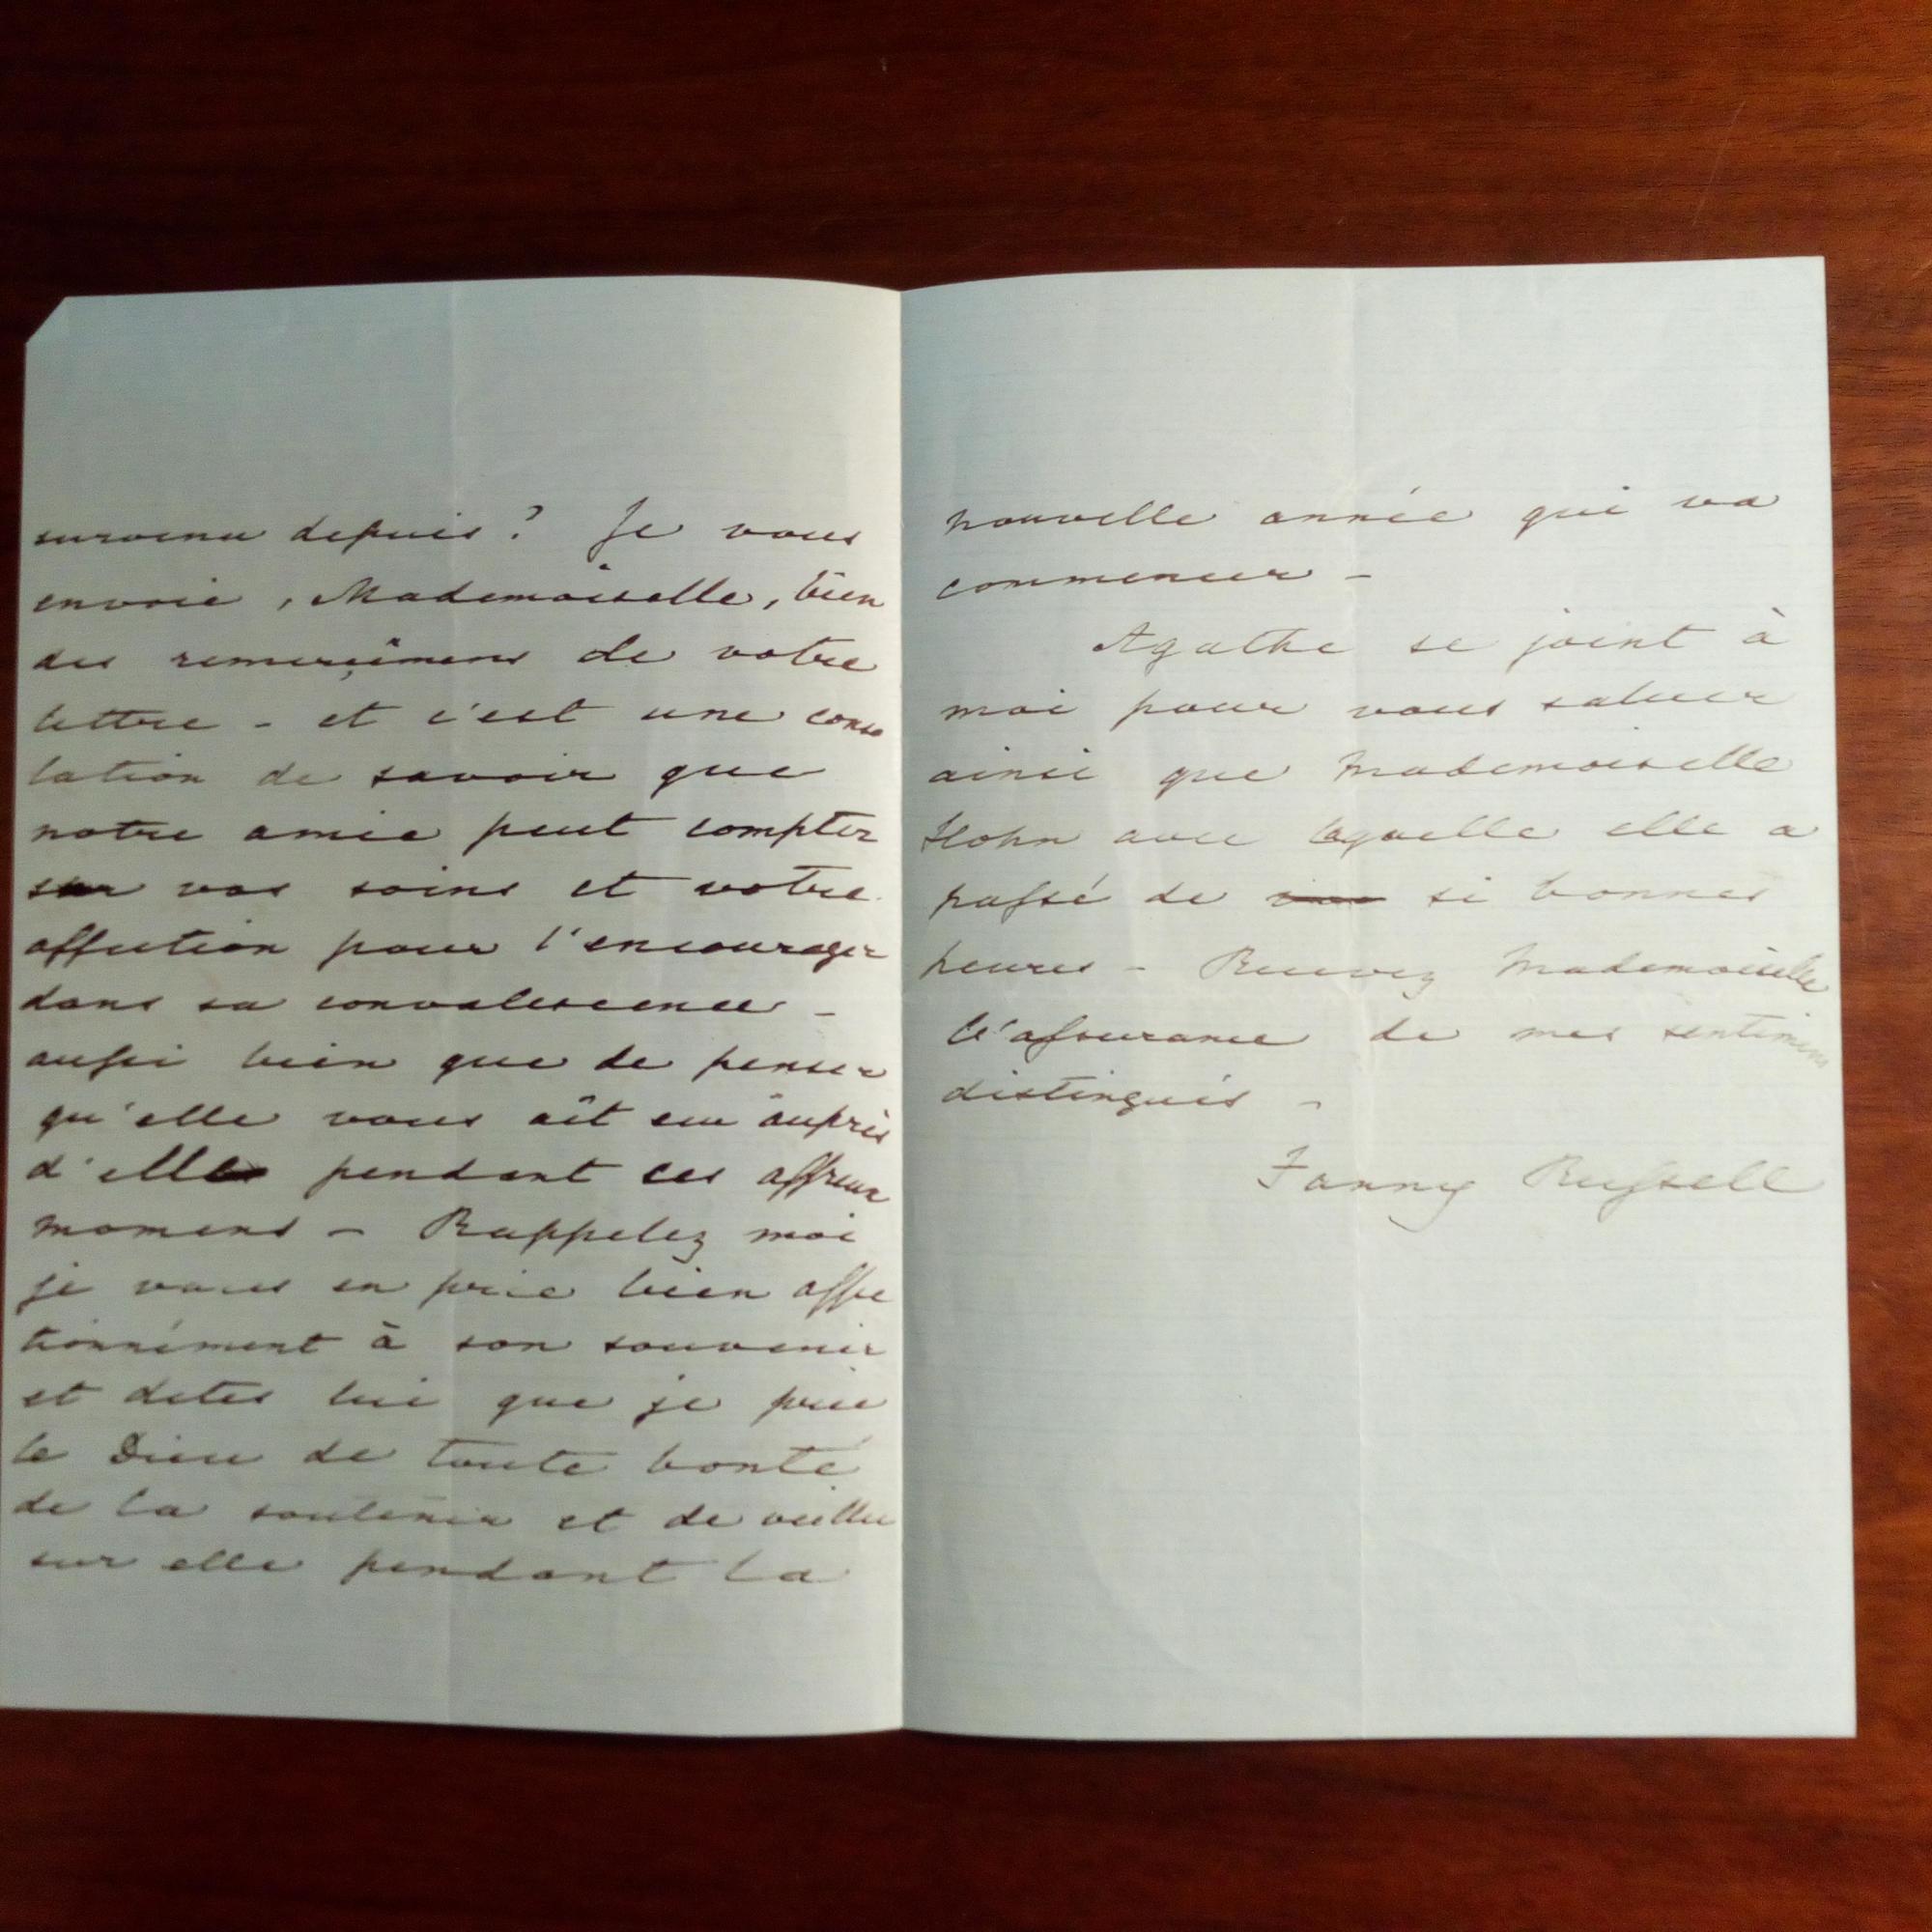 survenu depuis ? Je vous
envoie, Mademoiselle, bien
des remerçîmens de votre
lettre - et c'est une conso
lation de savoir que
notre amie peut compter
sur vos soins et votre
affection pour l'encourager
dans sa convalescence -
aussi bien que de penser
qu'elle vous ait eu auprès
d'elle pendant ces affreux
momens - Rappelez moi
je vous en prie bien affec
tionnément à son souvenir
et dites lui que je prie
le Dieu de toute bonté
de la soutenir et de veiller
sur elle pendant la
nouvelle année qui va
commencer -
Agathe se joint à
moi pour vous saluer
ainsi que Mademoiselle
Hohn avec laquelle elle a
passé de si bonnes
heures - Recevez Mademoiselle
l'assurance de mes sentimens
distingués -
Fanny Russell